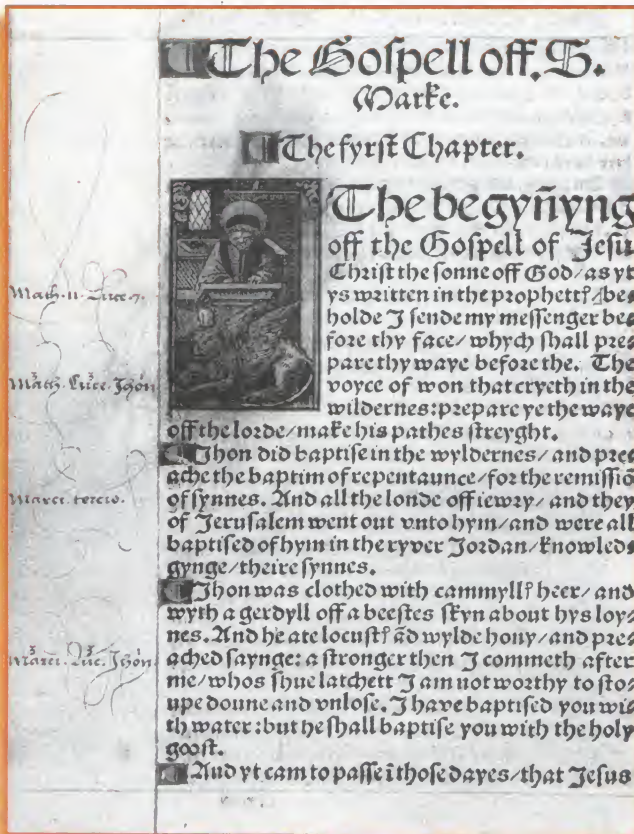 The Gospell off. S.
Marke.
The fyrst Chapter.
The begyñyng
off the Gospell of Jesu
Christ the sonne off God/as yt
ys written in the prophettꝭ/be⸗
holde I sende my messenger be⸗
fore thy face/whych shall pre⸗
pare thy waye before the. The
voyce of won that cryeth in the
wildernes:prepare ye the waye
off the lorde/make his pathes streyght.
Jhon did baptise in the wyldernes/and pre⸗
ache the baptim of repentaunce/for the remissiõ
of synnes. And all the londe off iewry/and they
of Jerusalem went out vnto hym/and were all
baptised of hym in the ryver Jordan/knowled⸗
gynge/theire synnes.
Jhon was clothed with cammyllꝭ heer/and
wyth a gerdyll off a beestes skyn about hys loy⸗
nes. And he ate locustꝭ ãd wylde hony/and pre⸗
ached saynge: a stronger then I commeth after
me/whos shue latchett I am not worthy to sto⸗
upe doune and vnlose. I have baptised you wi⸗
th water:but he shall baptise you with the holy
goost.
And yt cam to passe ĩ those dayes/that Jesus
Math. 11. Luce 7.
Math. Luce. Jhon
Marci. tercio.
Marci. Luc. Jhon